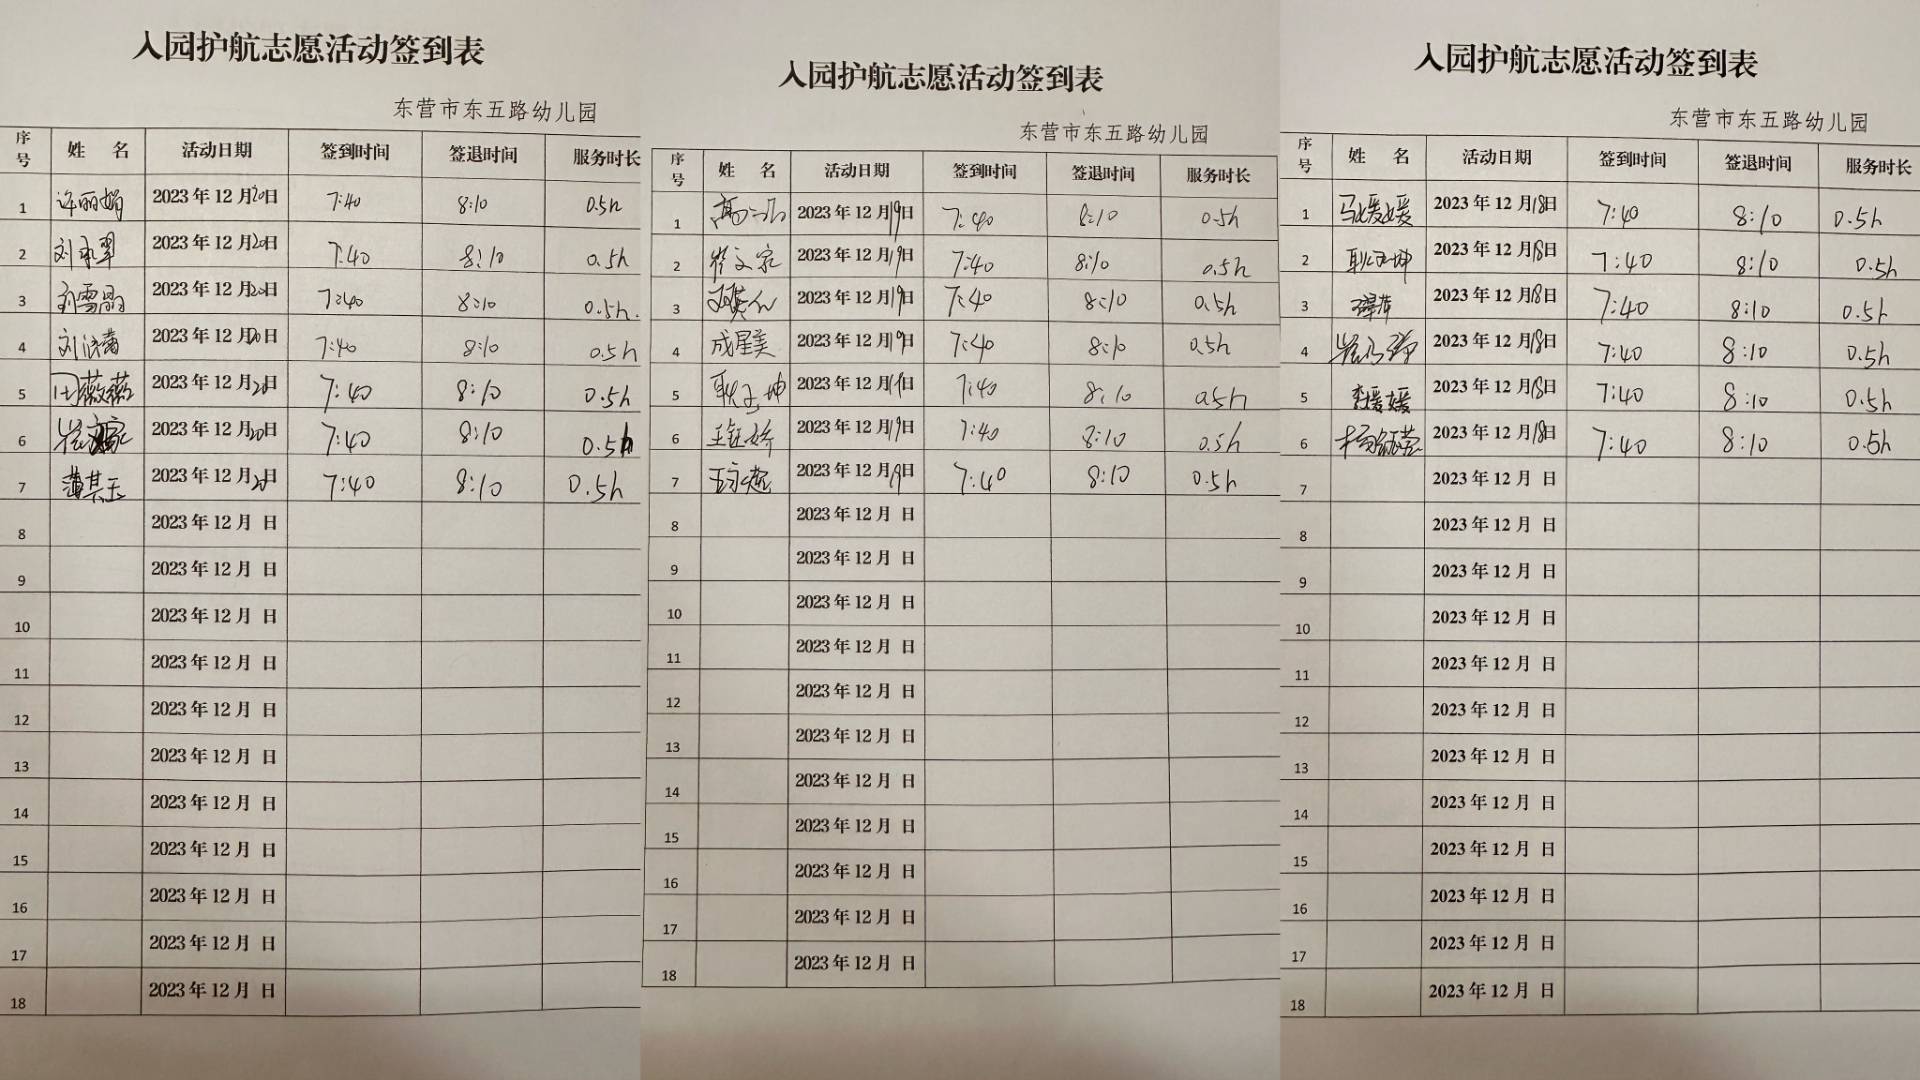 入园护航志愿活动签到表
东营市东五路幼儿园
序号 姓 名 活动日期 签到时间 签退时间 服务时长
1 许丽娟 2023 年 12 月20日 7:40 8:10 0.5h
2 刘承翠 2023 年 12 月20日 7:40 8:10 0.5h
3 刘雪晶 2023 年 12 月20日 7:40 8:10 0.5h.
4 刘 2023 年 12 月20日 7:40 8:10 0.5h
5 田薇薇 2023 年 12 月20日 7:40 8:10 0.5h
6 崔文家 2023 年 12 月20日 7:40 8:10 0.5h
7 蒲其玉 2023 年 12 月20日 7:40 8:10 0.5h
8 2023 年 12 月 日
9 2023 年 12 月 日
10 2023 年 12 月 日
11 2023 年 12 月 日
12 2023 年 12 月 日
13 2023 年 12 月 日
14 2023 年 12 月 日
15 2023 年 12 月 日
16 2023 年 12 月 日
17 2023 年 12 月 日
18 2023 年 12 月 日
入园护航志愿活动签到表
东营市东五路幼儿园
序号 姓 名 活动日期 签到时间 签退时间 服务时长
1 高 2023 年 12 月19日 7:40 8:10 0.5h
2 崔文家 2023 年 12 月19日 7:40 8:10 0.5h
3 2023 年 12 月19日 7:40 8:10 0.5h
4 成星美 2023 年 12 月19日 7:40 8:10 0.5h
5 耿玉坤 2023 年 12 月19日 7:40 8:10 0.5h
6 王钰娇 2023 年 12 月19日 7:40 8:10 0.5h
7 王永燕 2023 年 12 月19日 7:40 8:10 0.5h
8 2023 年 12 月 日
9 2023 年 12 月 日
10 2023 年 12 月 日
11 2023 年 12 月 日
12 2023 年 12 月 日
13 2023 年 12 月 日
14 2023 年 12 月 日
15 2023 年 12 月 日
16 2023 年 12 月 日
17 2023 年 12 月 日
18 2023 年 12 月 日
入园护航志愿活动签到表
东营市东五路幼儿园
序号 姓 名 活动日期 签到时间 签退时间 服务时长
1 马媛媛 2023 年 12 月18日 7:40 8:10 0.5h
2 耿玉坤 2023 年 12 月18日 7:40 8:10 0.5h
3 2023 年 12 月18日 7:40 8:10 0.5h
4 崔 2023 年 12 月18日 7:40 8:10 0.5h
5 李媛媛 2023 年 12 月18日 7:40 8:10 0.5h
6 杨 2023 年 12 月18日 7:40 8:10 0.5h
7 2023 年 12 月 日
8 2023 年 12 月 日
9 2023 年 12 月 日
10 2023 年 12 月 日
11 2023 年 12 月 日
12 2023 年 12 月 日
13 2023 年 12 月 日
14 2023 年 12 月 日
15 2023 年 12 月 日
16 2023 年 12 月 日
17 2023 年 12 月 日
18 2023 年 12 月 日